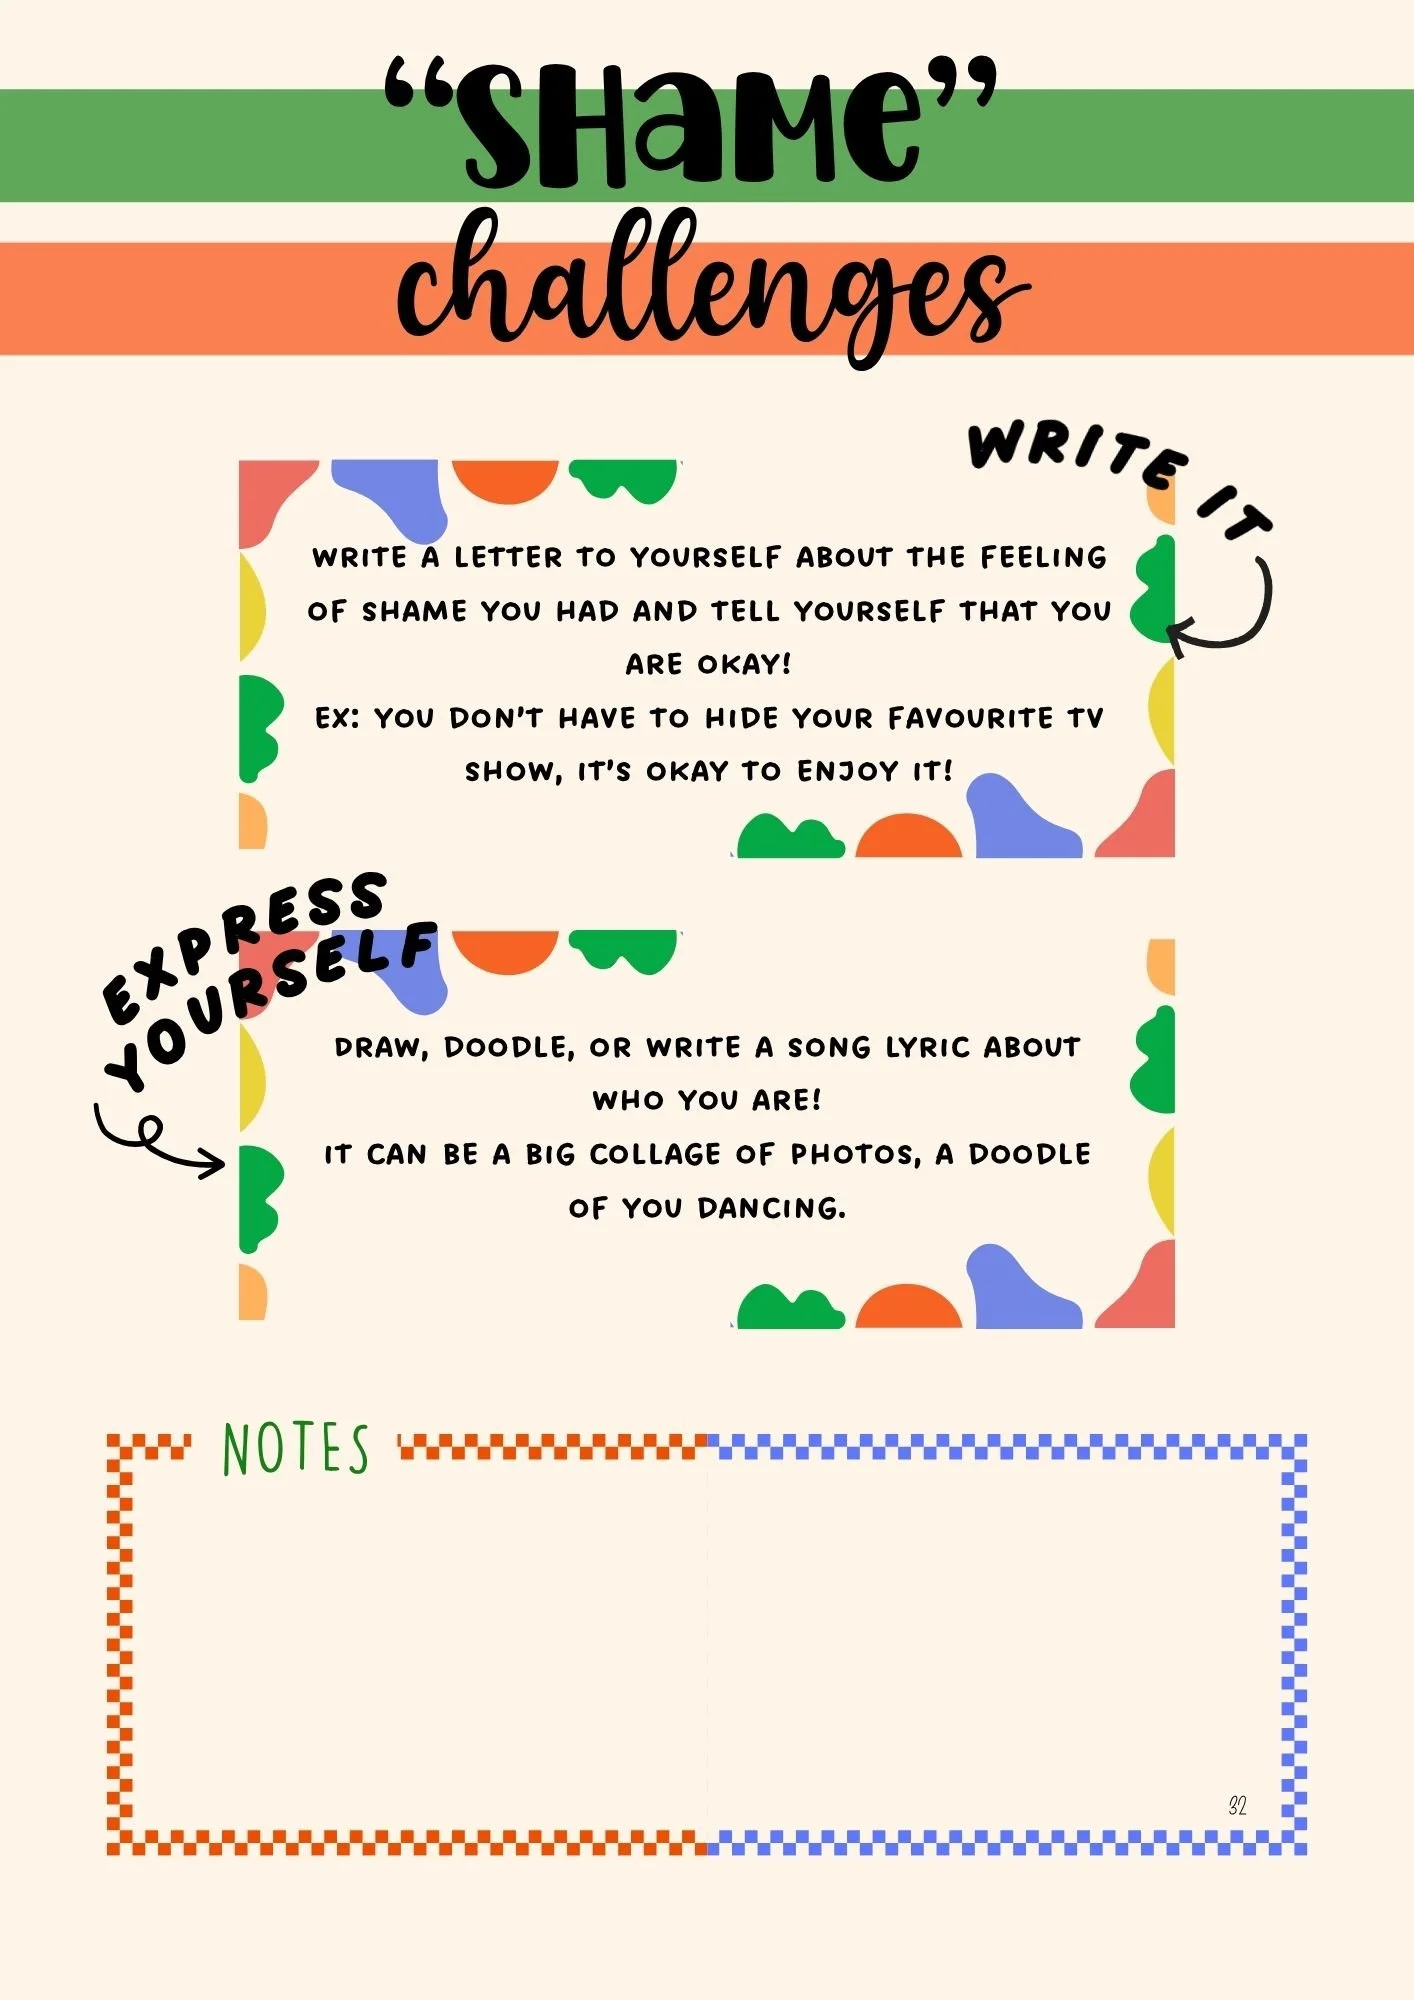 “SHaMe”
challenges
WRITE IT
WRITE A LETTER TO YOURSELF ABOUT THE FEELING
OF SHAME YOU HAD AND TELL YOURSELF THAT YOU
ARE OKAY!
EX: YOU DON'T HAVE TO HIDE YOUR FAVOURITE TV
SHOW, IT'S OKAY TO ENJOY IT!
EXPRESS
YOURSELF
DRAW, DOODLE, OR WRITE A SONG LYRIC ABOUT
WHO YOU ARE!
IT CAN BE A BIG COLLAGE OF PHOTOS, A DOODLE
OF YOU DANCING.
NOTES
32